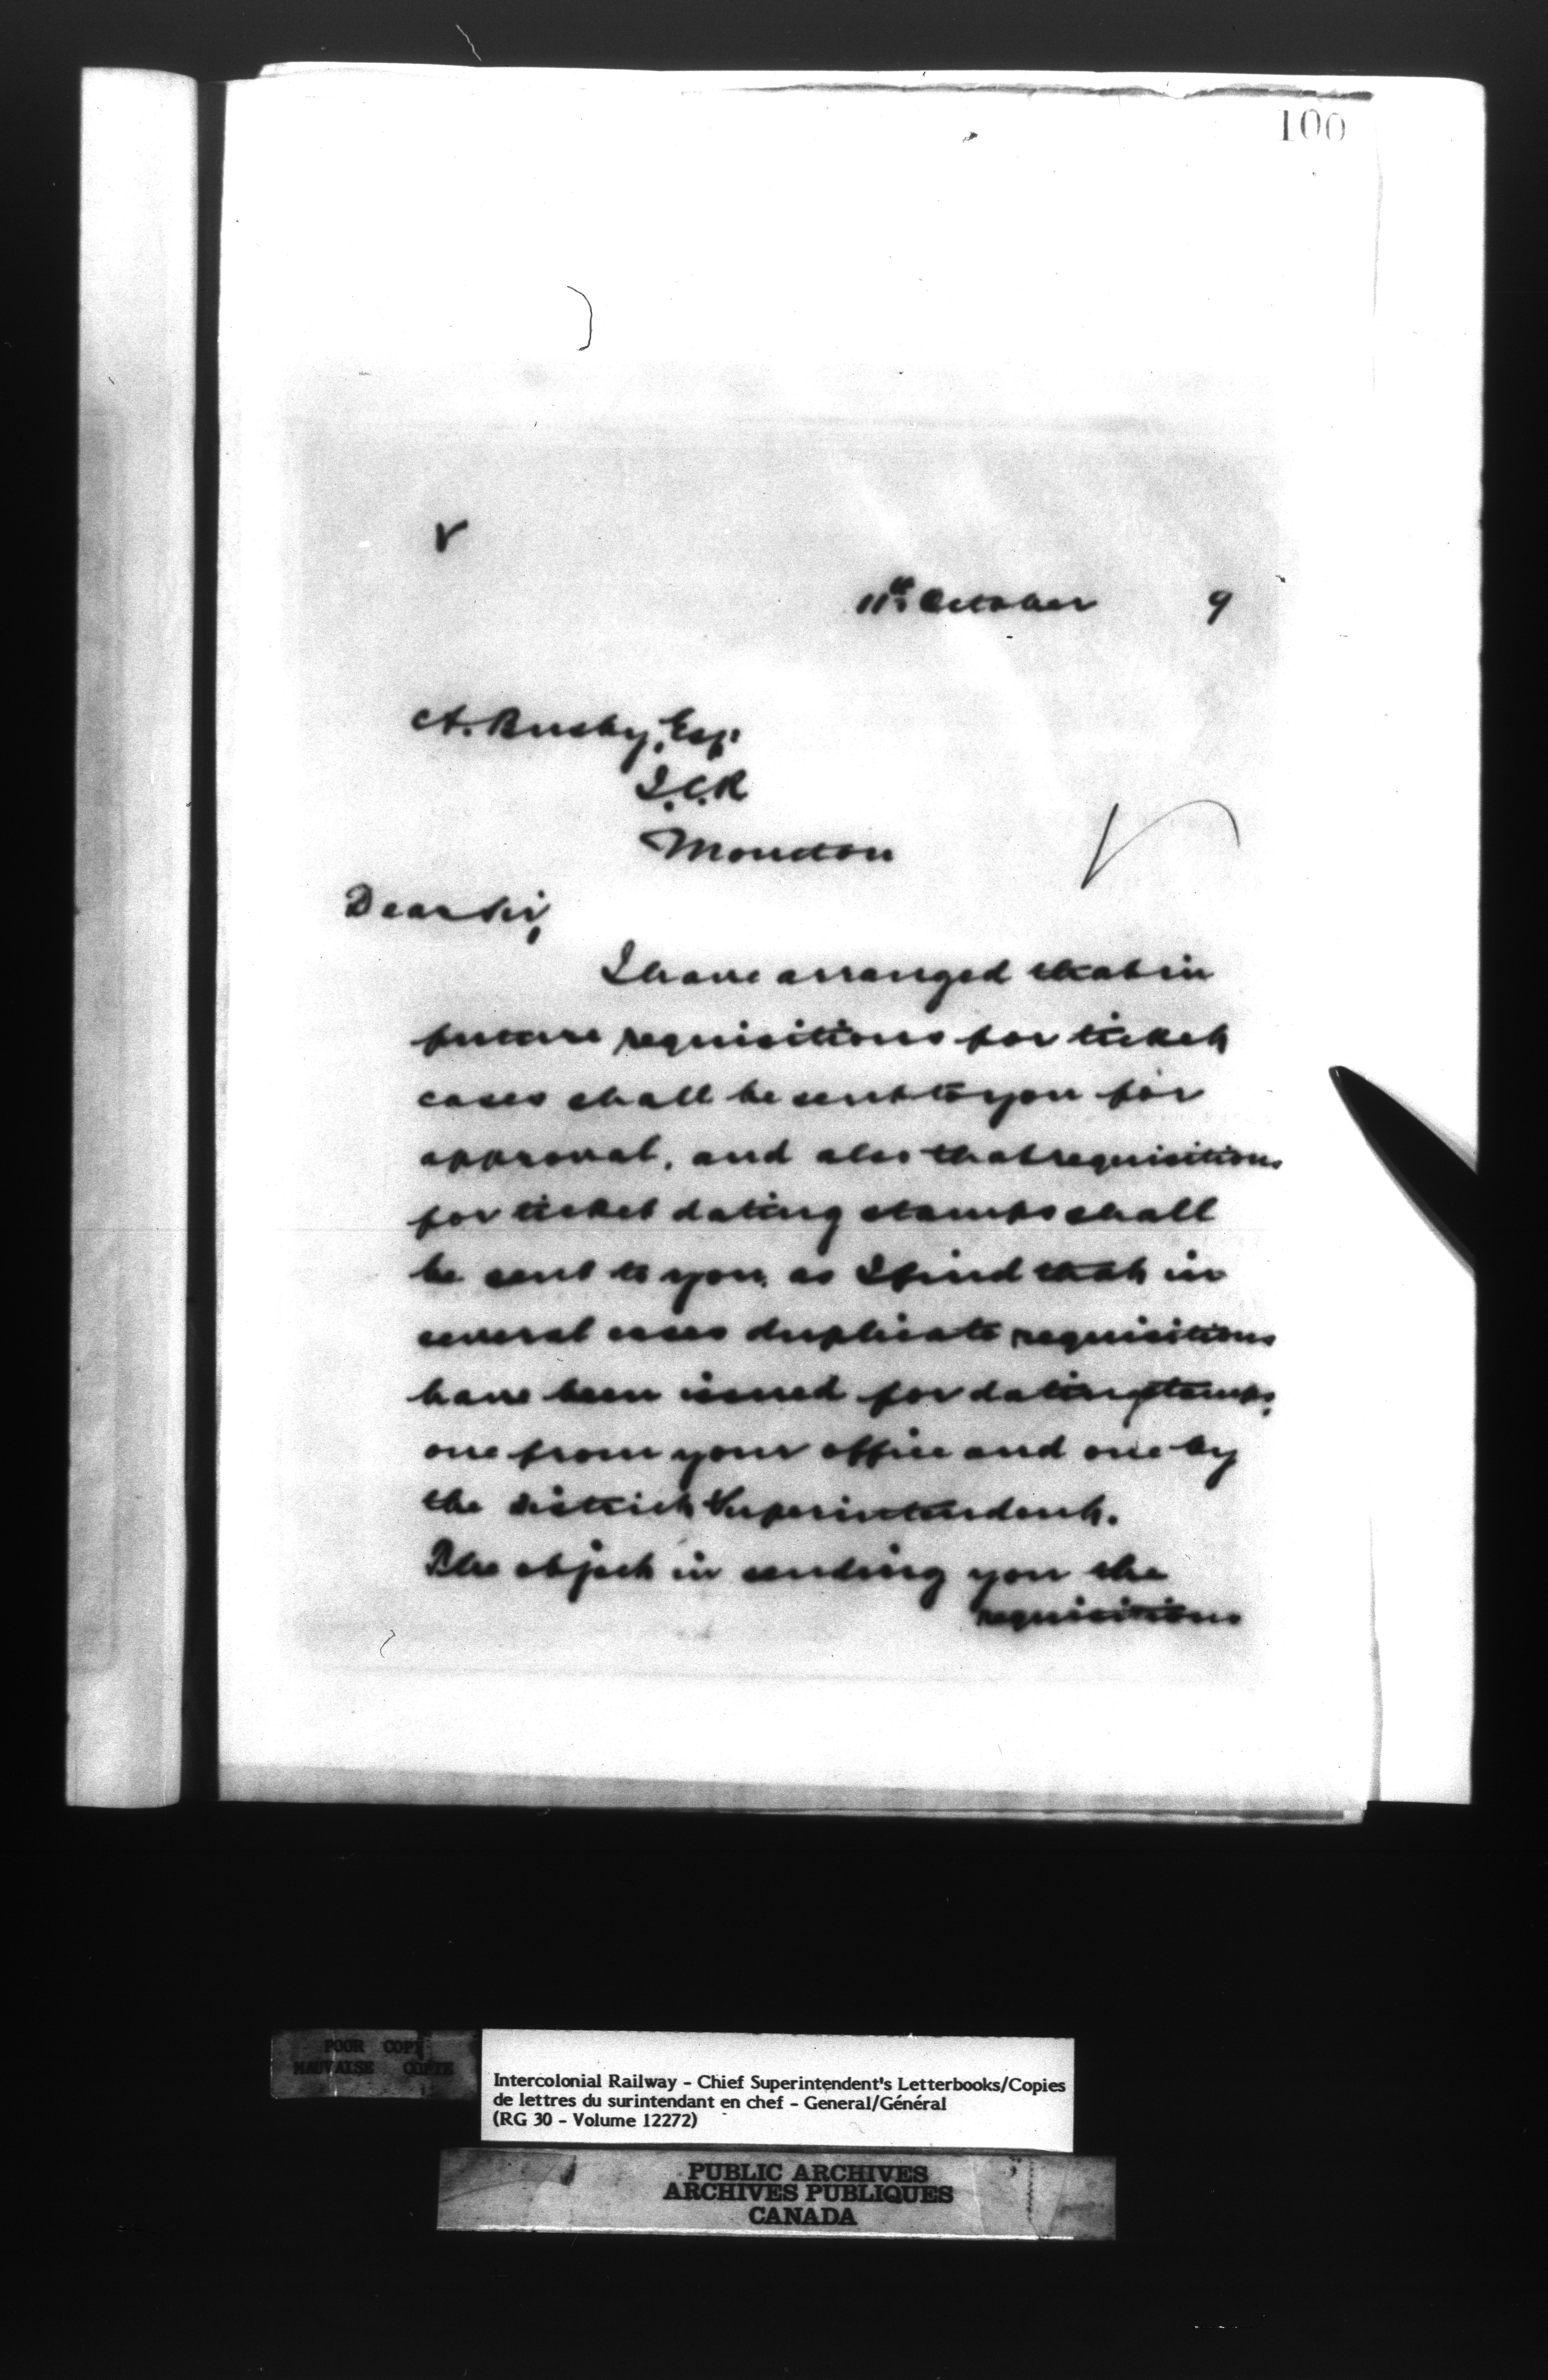 100
11th October 9
A. Busby, Esq.
I.C.R
Moncton
Dear Sir,
I have arranged that in
future requisitions for ticket
cases shall be sent to you for
approval, and also that requisitions
for ticket dating stamps shall
be sent to you, as I find that in
several cases duplicate requisitions
have been issued for dating stamps,
one from your office and one by
the District Superintendent.
The object in sending you the
requisitions
POOR COPY
MAUVAISE COPIE
Intercolonial Railway - Chief Superintendent's Letterbooks/Copies
de lettres du surintendant en chef - General/Général
(RG 30 - Volume 12272)
PUBLIC ARCHIVES
ARCHIVES PUBLIQUES
CANADA